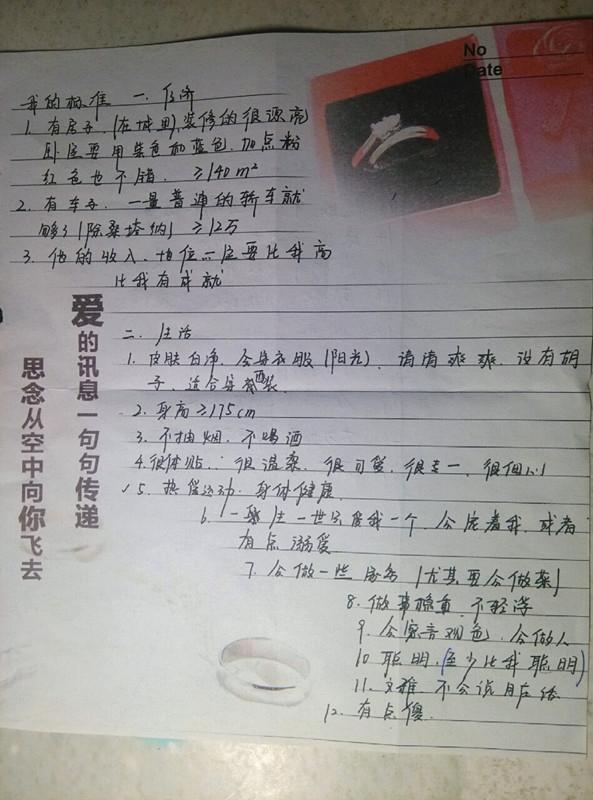 No
Date
我的标准 一. 经济
1. 有房子,(在城里),装修的很漂亮
卧室要用紫色和蓝色.加点粉
红色也不错. ≥140m²
2. 有车子. 一量普通的轿车就
够了(除桑塔纳) ≥12万
3. 他的收入、地位一定要比我高
比我有成就
爱的讯息一句句传递
思念从空中向你飞去
二. 生活
1. 皮肤白净. 会穿衣服(阳光). 清清爽爽. 没有胡
子. 适合穿西装.
2. 身高≥175cm
3. 不抽烟. 不喝酒
4. 很体贴. 很温柔. 很可爱. 很专一. 很细心
5. 热爱运动. 身体健康.
6. 一生一世只爱我一个. 会宠着我. 或者
有点溺爱
7. 会做一些家务(尤其要会做菜)
8. 做事稳重. 不轻浮
9. 会察言观色. 会做人
10 聪明.(至少比我聪明)
11. 文雅 不会说脏话
12. 有点傻.